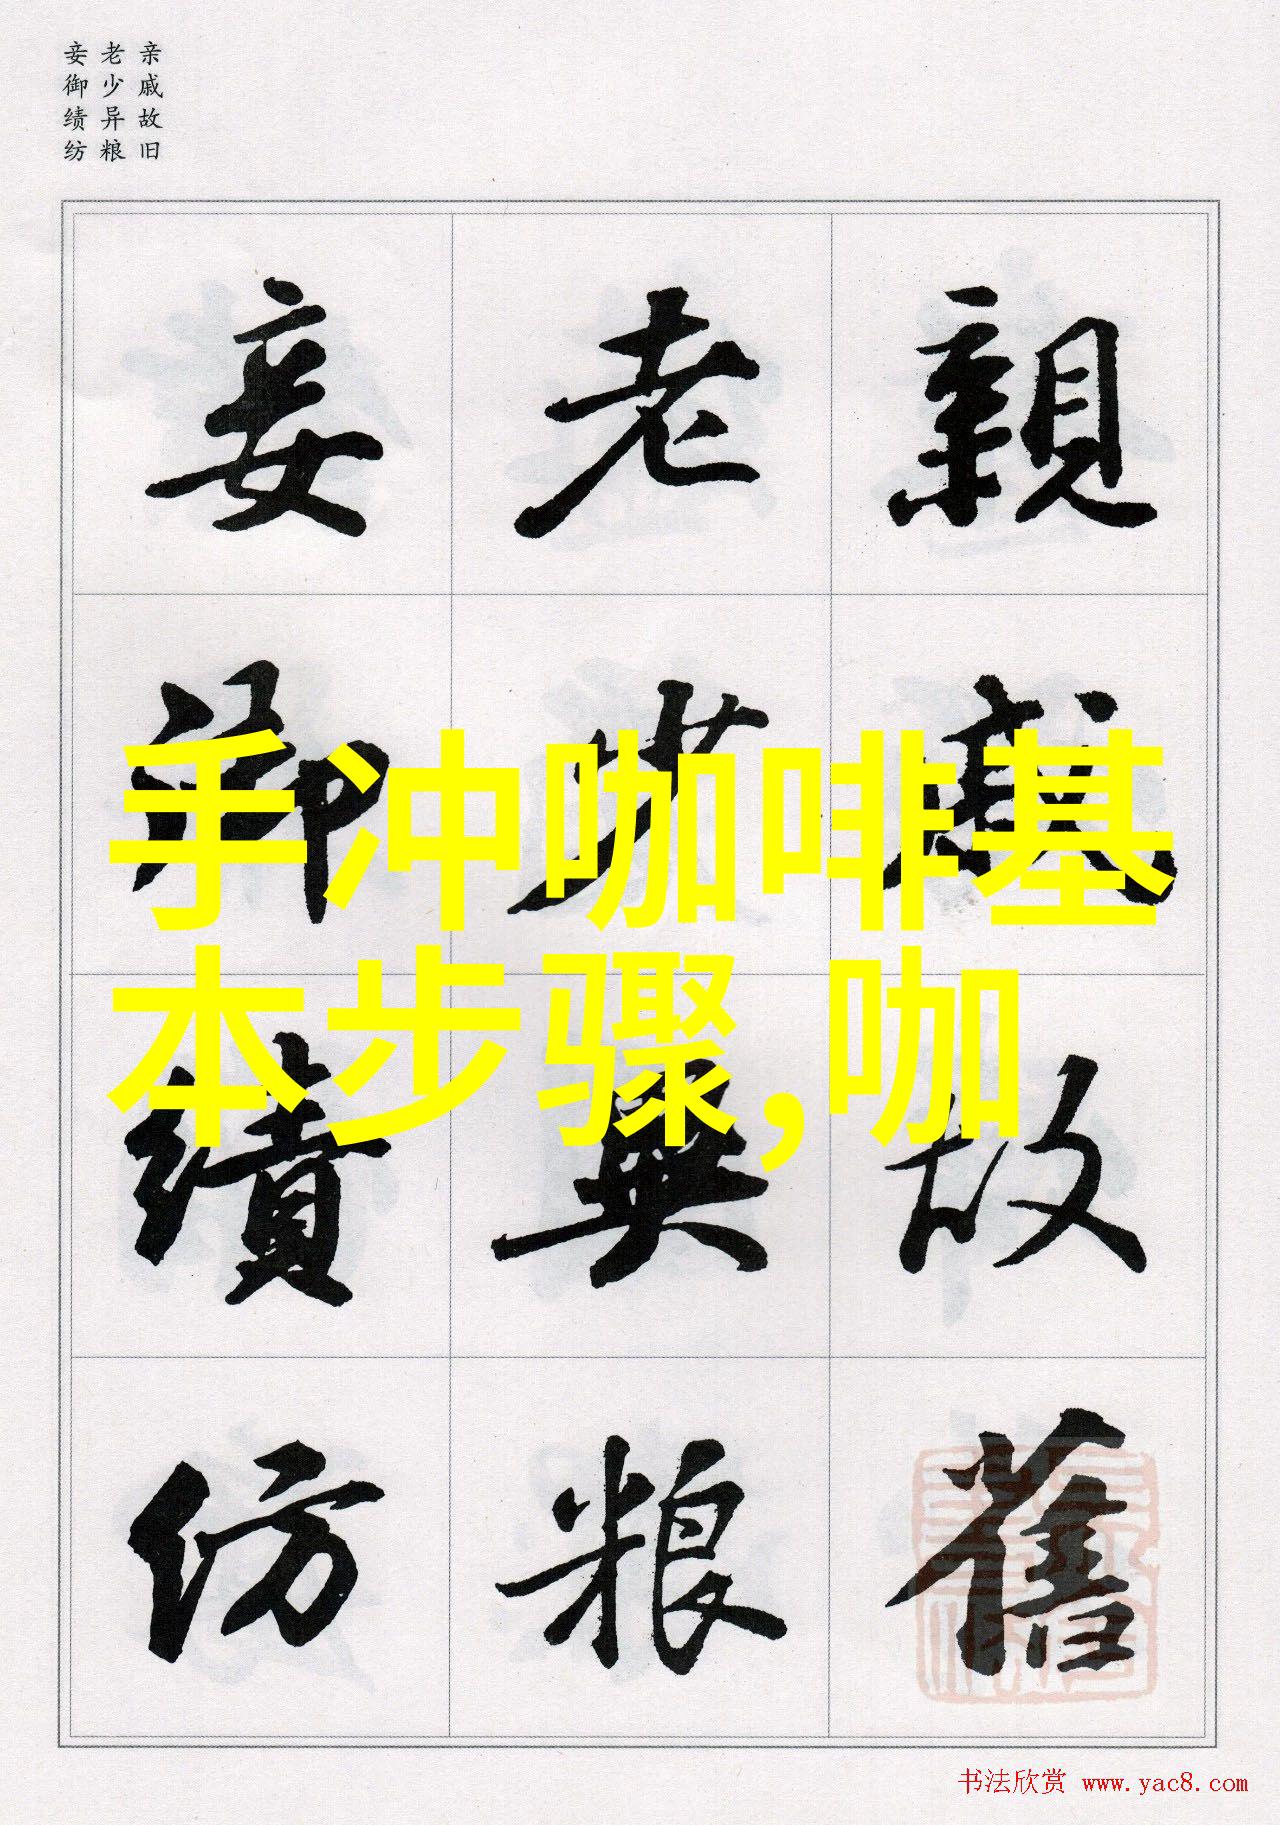 亲戚故旧
老少异粮
妾御绩纺
親戚故舊
老少異粮
妾御績紡
手冲咖啡基
本步骤,咖
书法欣赏 www.yac8.com